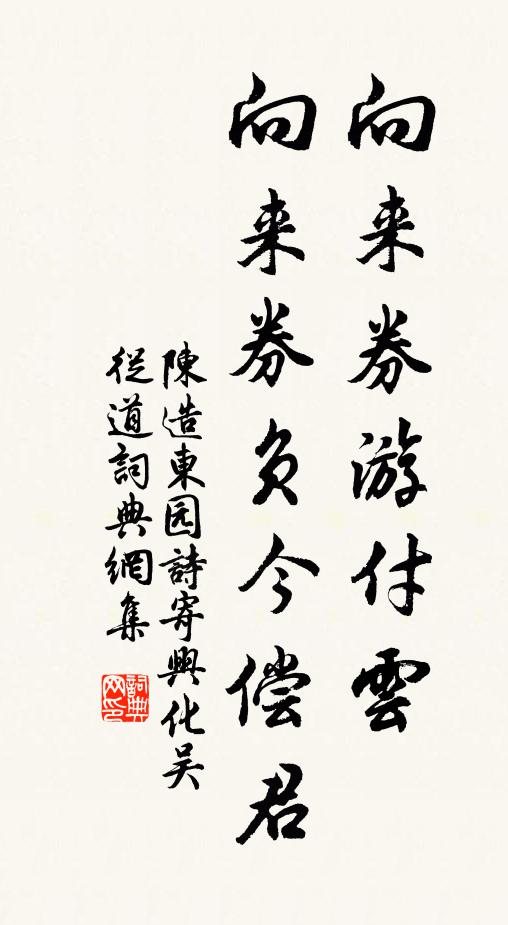 向来券游付雲
向来券负今偿君
陳造東园詩寄興化吴
從道詞典網集
詞典网印